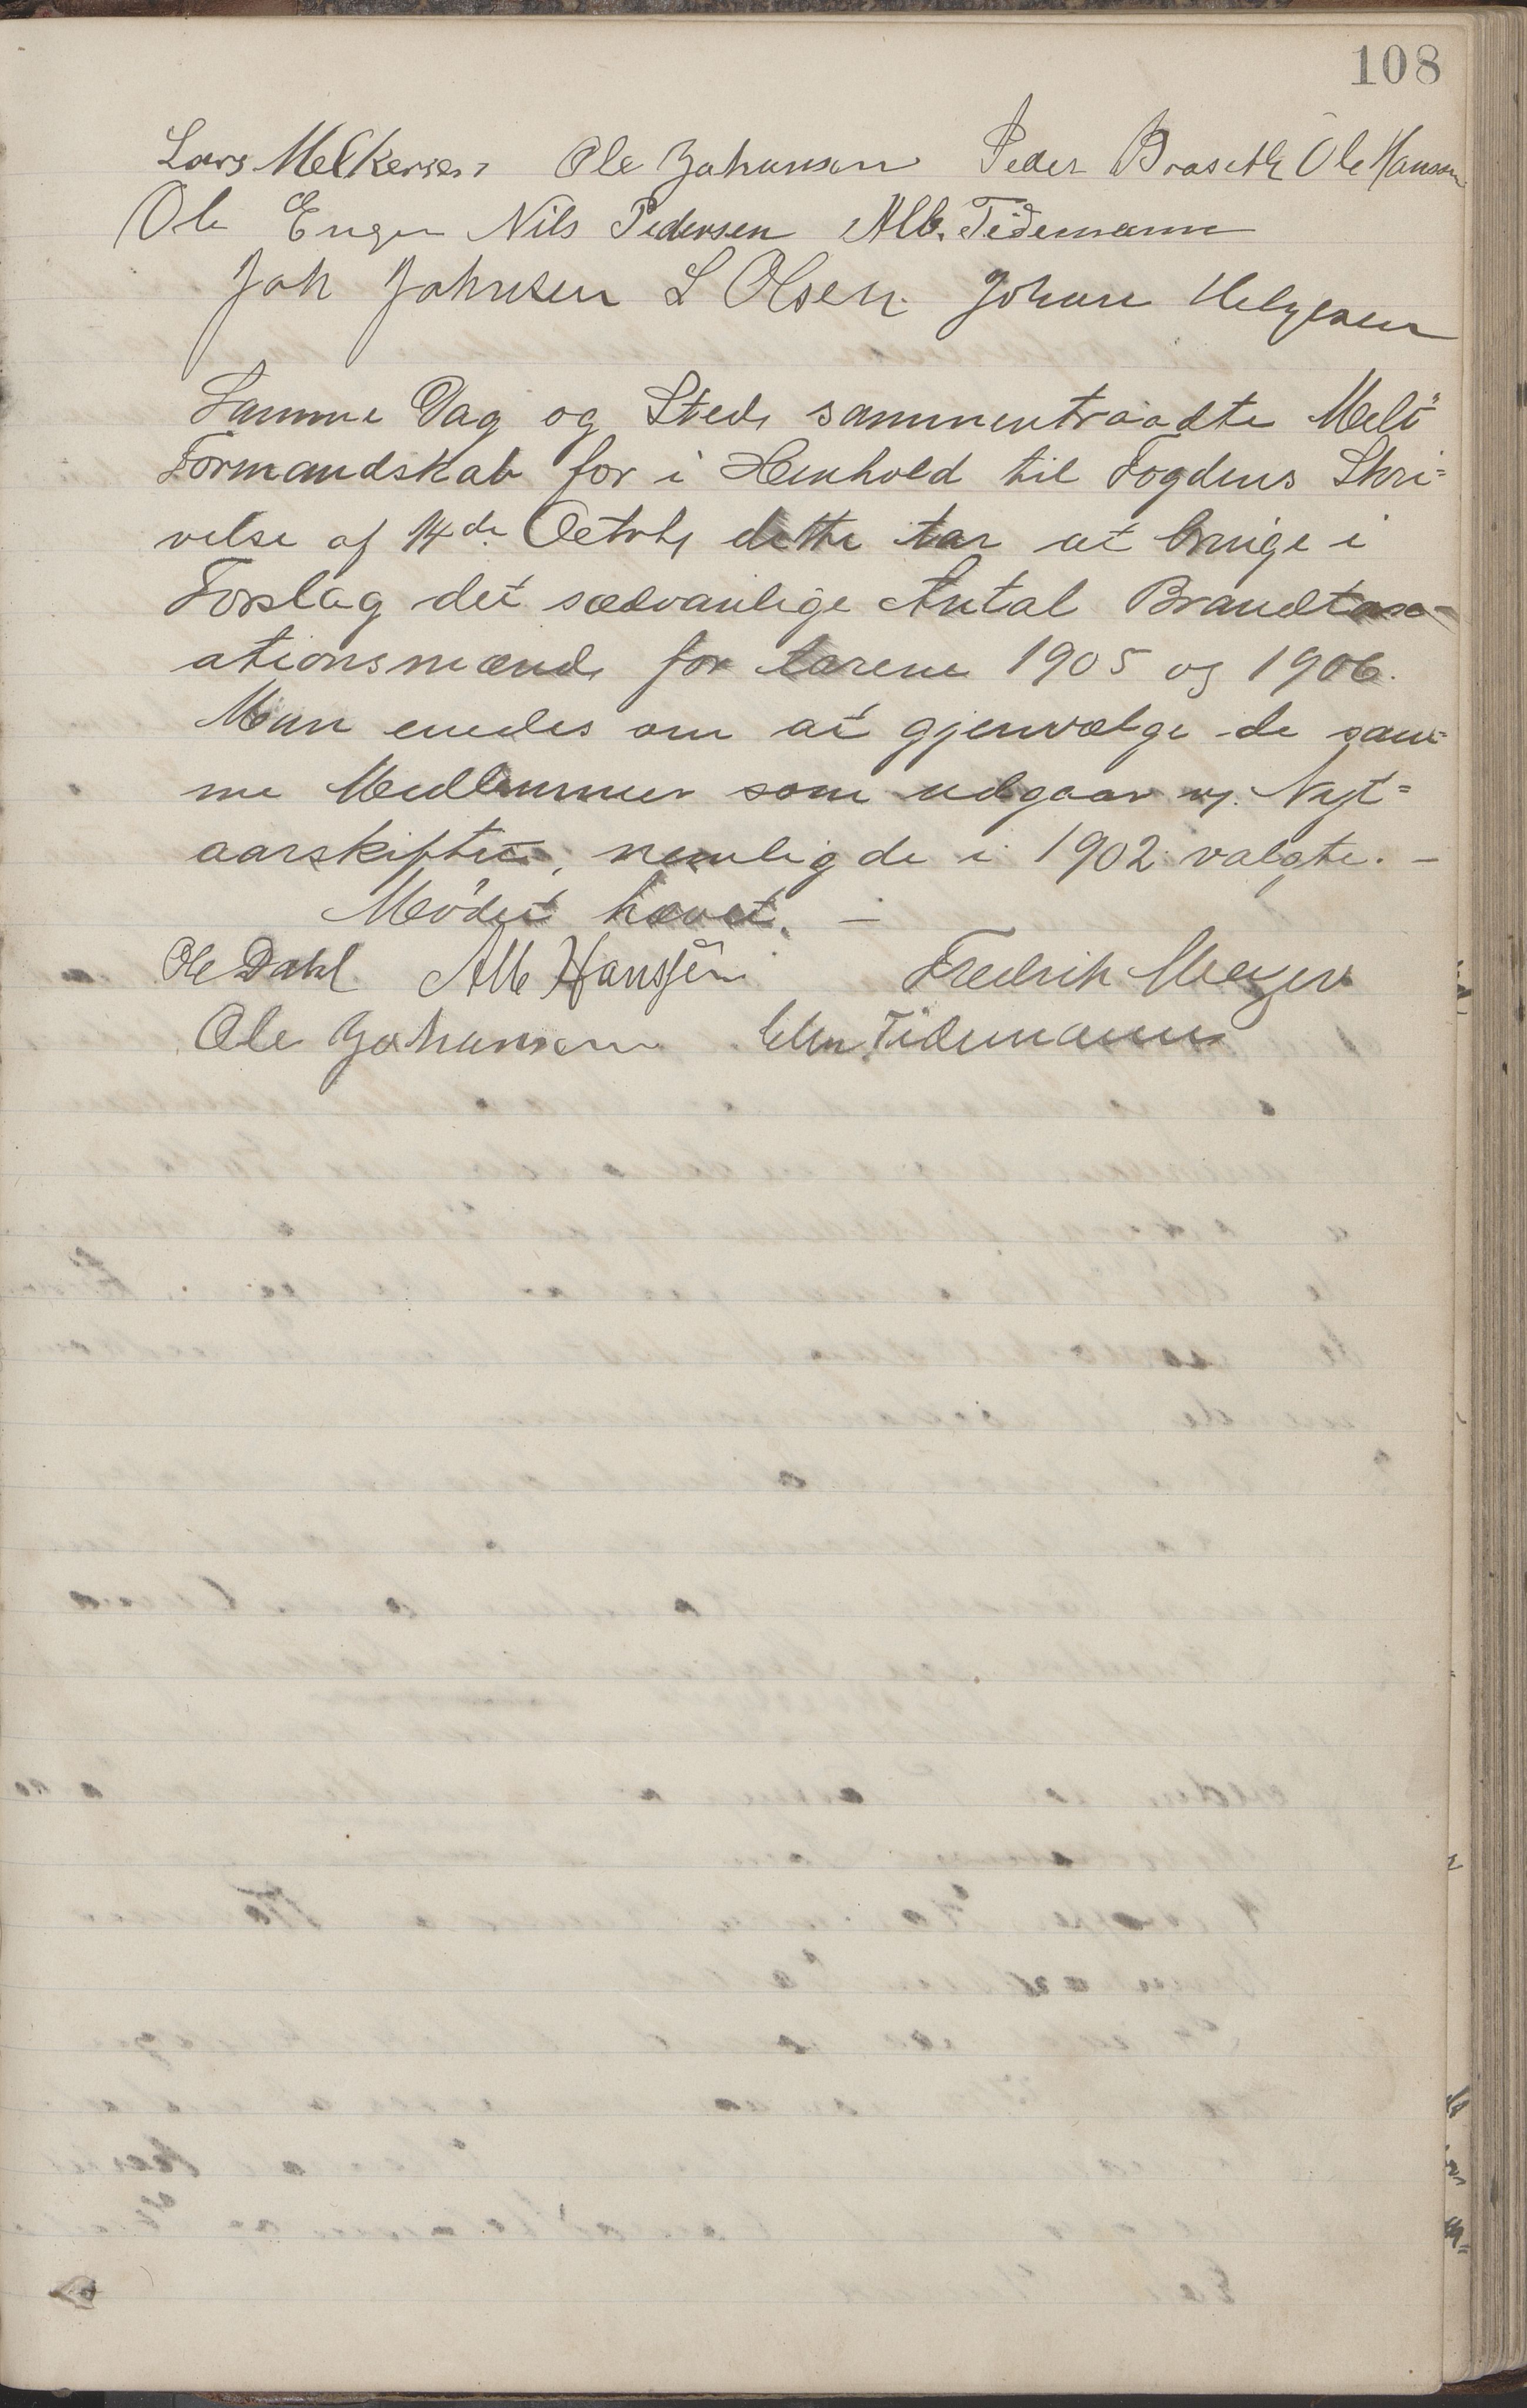 108
Lars Melkersen Ole Johansen Peder Braseth Ole Hansen
Ole Enge Nils Pedersen Alb. Tidemann
Joh Johnsen L Olsen. Johan Helgesen
Samme Dag og Sted sammentraadte Melö
Formandskab for i Henhold til Fogdens Skri=
velse af 14de Octbr dette Aar at bringe i
Forslag det sædvanlige Antal Brandtax-
ationsmænd for Aarene 1905 og 1906.
Man enedes om at gjenvælge de sam=
me Medlemmer som udgaar v. Nyt=
aarskiftet, nemlig de i 1902 valgte. –
Mödet hævet. –
Ole Dahl Alb Hanssen Fredrik Meyer
Ole Johansen Tidemann